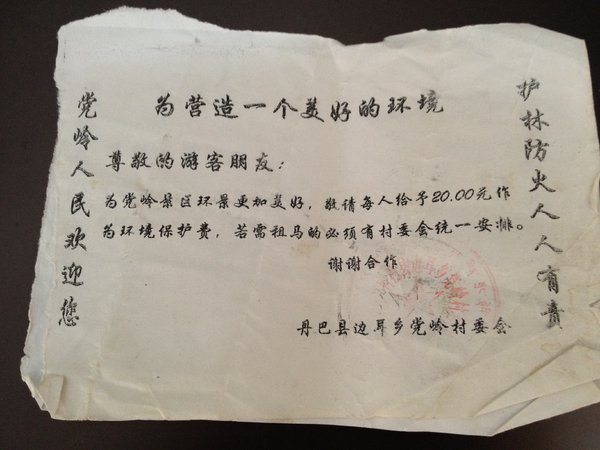 党岭人民欢迎您
为营造一个美好的环境
尊敬的游客朋友：
为党岭景区环景更加美好，敬请每人给予20.00元作
为环境保护费，若需租马的必须有村委会统一安排。
谢谢合作
丹巴县边耳乡党岭村委会
护林防火人人有责